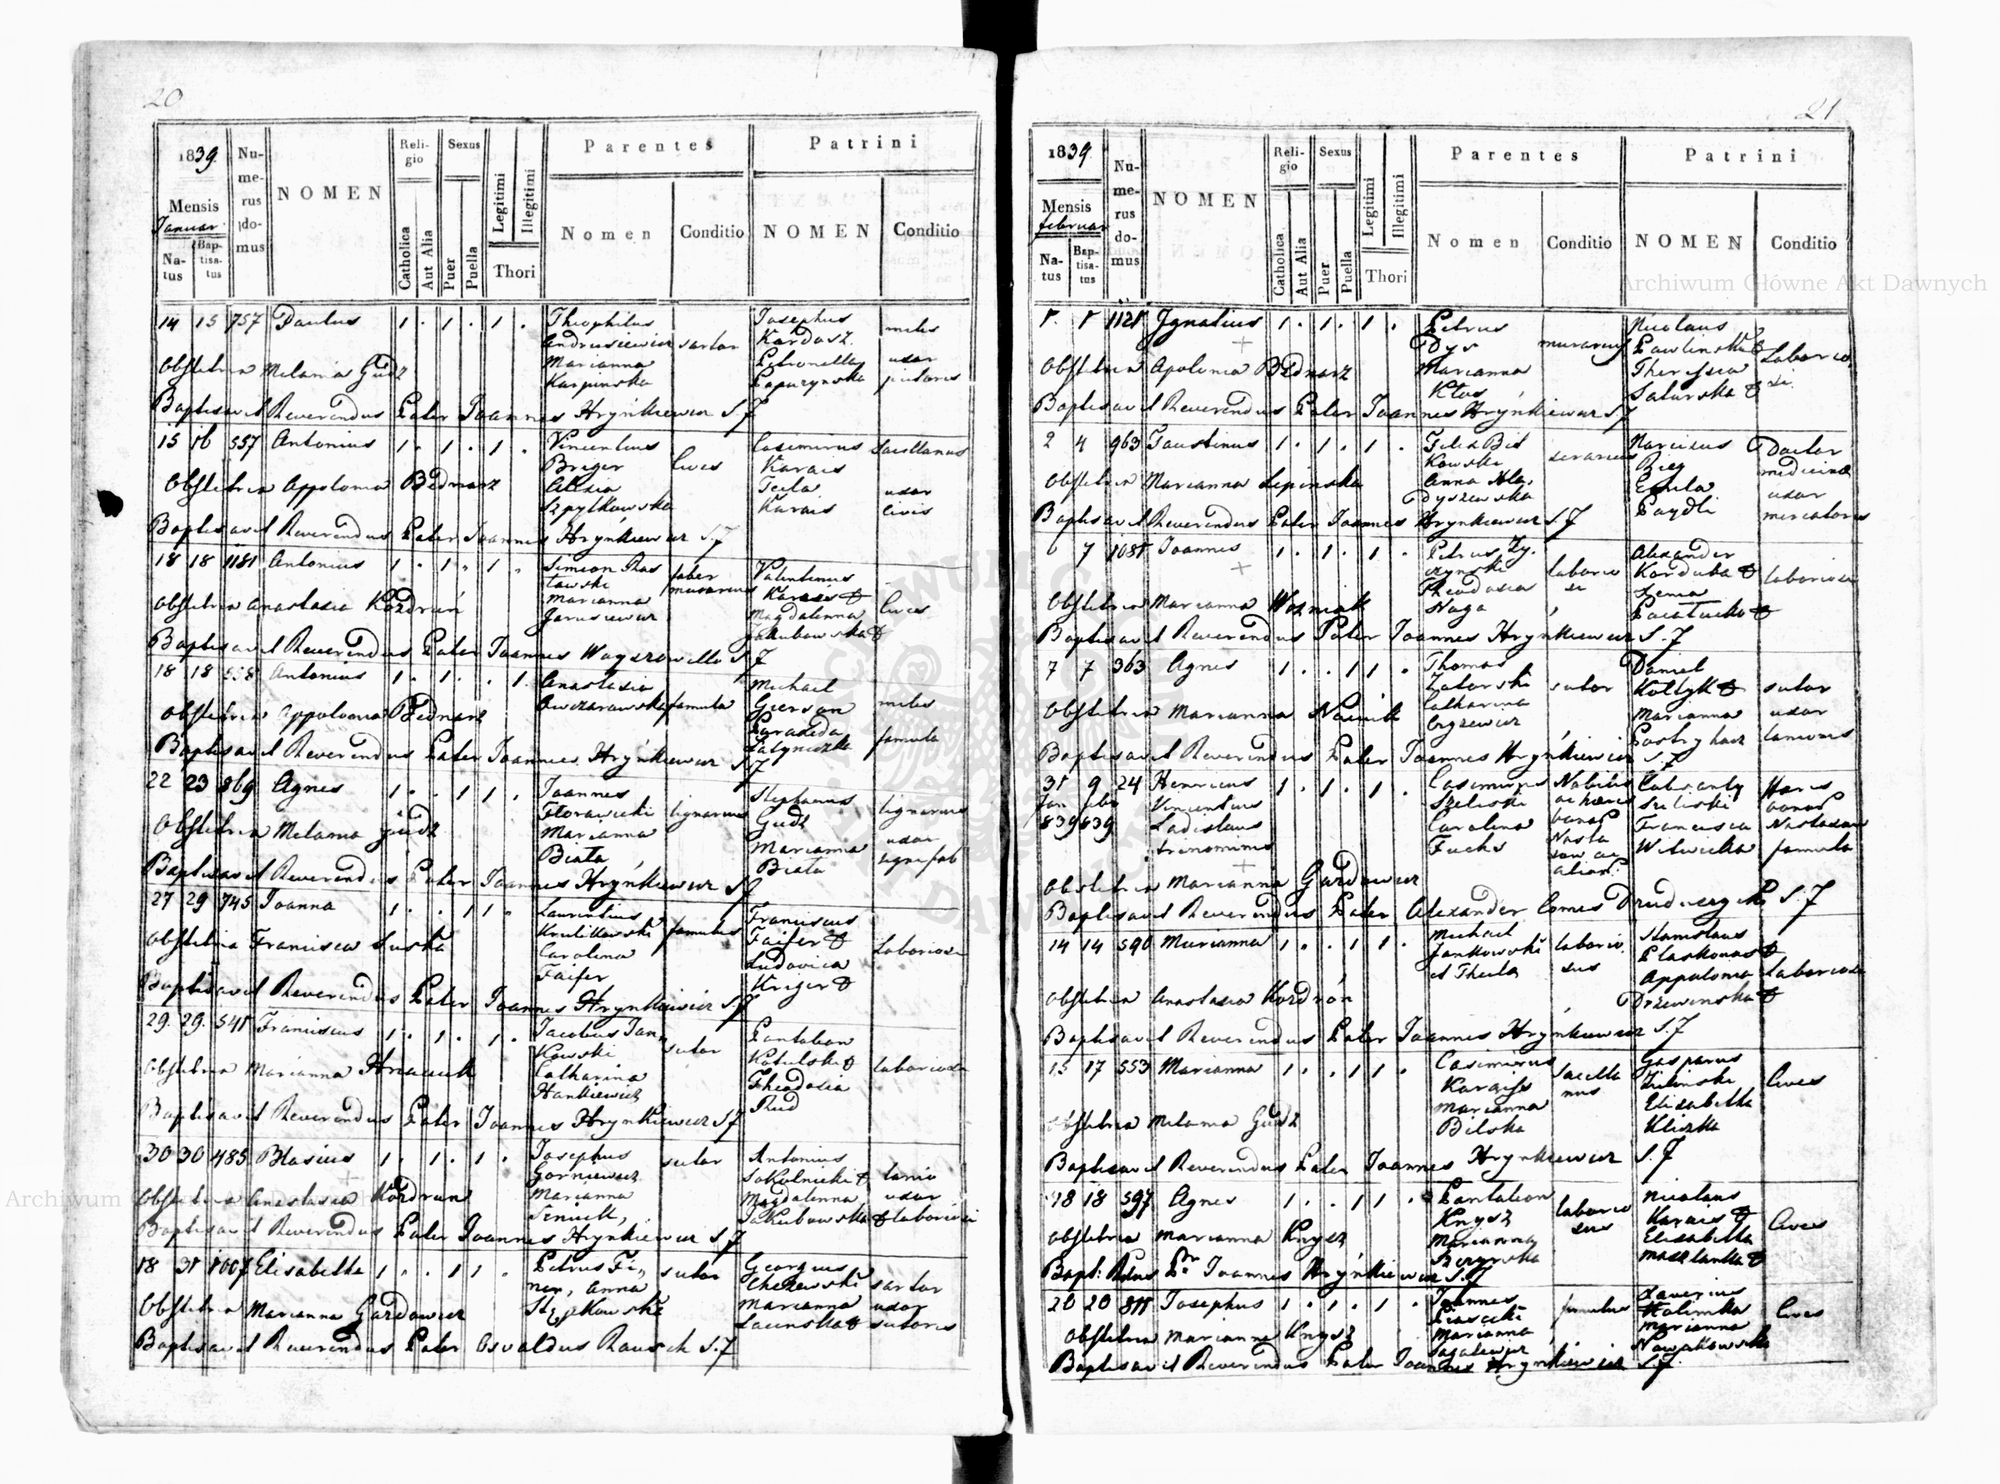 20
1839.
Mensis
Januar
Natus
Baptisatus
Numerus domus
NOMEN
Religio
Catholica
Aut Alia
Sexus
Puer
Puella
Legitimi
Illegitimi
Thori
Parentes
Nomen
Conditio
Patrini
NOMEN
Conditio
14 15 757 Paulus 1 . 1 . 1 . Theophilus Josephus miles
Andrusiewicz sartor Kardasz
Obstetrix Melania Gudz Marianna Petronella uxor
Karpinska Capuzynska pictoris
Baptisavit Reverendus Pater Joannes Hryńkiewicz S.J
15 16 557 Antonius 1 . 1 . 1 . Vincentius Casimirus Sacellanus
Breger Cives Karais
Obstetrix Appolonia Bednarz Alexia Tecla uxor
Szpytkowska Karais civis
Baptisavit Reverendus Pater Joannes Hryńkiewicz S.J
18 18 1181 Antonius 1 . 1 . 1 . Simeon Ros faber Valentinus
towski murarius Karass &
Obstetrix Anastasia Kozdruń Marianna Magdalenna Cives
Jarusiewicz Jakubowska &
Baptisavit Reverendus Pater Joannes Woyszewillo S.J
18 18 558 Antonius 1 . 1 . . 1. Anastasia Michael
Owczarowska famula Gierson miles
Obstetrix Appolonia Bednarz Paraseda
Latyniczka famula
Baptisavit Reverendus Pater Joannes Hryńkiewicz S.J
22 23 869 Agnes 1 . . 1 1 . Joannes Stephanus
Florawicki lignarius Gudz lignarius
Obstetrix Melania Gudz Marianna Marianna uxor
Biała Biała lignifab
Baptisavit Reverendus Pater Joannes Hryńkiewicz S.J
27 29 745 Joanna 1 . . 1 1 . Laurentius Franciscus
Krulikowski famulus Faifer &
Obstetrix Francisca Luska Carolina Ludovica Laboriosi
Faifer Kriger &
Baptisavit Reverendus Pater Joannes Hryńkiewicz S.J
29. 29. 541 Franciscus 1 . 1 . 1 . Jacobus Jan Pantaleon
kowski sutor Kobelski &
Obstetrix Marianna Hrawuk Catharina Theodosia laboriosi
Hankiewicz Rud
Baptisavit Reverendus Pater Joannes Hryńkiewicz S.J
30 30 485 Blasius 1 . 1 . 1 . Josephus sutor Antonius
Gorniewicz Sokolnicki & lanio
Obstetrix Anastasia Kozdrun Marianna Magdalenna uxor
Seniuk, Jakubowska & laboriosi
Baptisavit Reverendus Pater Joannes Hryńkiewicz S.J
18 31 1007 Elisabetha 1 . . 1 1 . Petrus Fi, sutor Georgius
ner, Anna Chelewski sartor
Obstetrix Marianna Gardowicz Stezkowski Marianna uxor
Lacinska & sutoris
Baptisavit Reverendus Pater Osvaldus Rausch S.J
21
1839.
Mensis
februar
Natus
Baptisatus
Numerus domus
NOMEN
Religio
Catholica
Aut Alia
Sexus
Puer
Puella
Legitimi
Illegitimi
Thori
Parentes
Nomen
Conditio
Patrini
NOMEN
Conditio
1. 1 1121 Ignatius 1 . 1 . 1 . Petrus Nicolaus
Dys murarius Pawlinski & Laborio
Obstetrix Apolonia Bednarz Marianna Theressia si.
Ktos Saturska &
Baptisavit Reverendus Pater Joannes Hryńkiewicz S.J
2 4 963 Faustinus 1 . 1 . 1 . Felix Bit Narcisus Doctor
kowski serarius Rieg medicinæ
Obstetrix Marianna Lipinska Anna Hla, Emila uxor
dyszewska Paydli mercatoris
Baptisavit Reverendus Pater Joannes Hrynkiewicz S.J
6 7 1081 Joannes 1 . 1 . 1 . Petrus Zy, Alexander
czynski laborio Korduba & laboriosi
Obstetrix Marianna Wozniak Theodosia si Xenia
Naga Pocałucko &
Baptisavit Reverendus Pater Joannes Hryńkiewicz S.J
7 7 363 Agnes 1 . . 1 1 . Thomas Daniel
Zatorski sutor Kołtyk & sutor
Obstetrix Marianna Nowik Catharina Marianna uxor
Cryzewicz Postryhacz lanionis
Baptisavit Reverendus Pater Joannes Hryńkiewicz S.J
31 9 24 Henricus 1 . 1 . 1 . Casimirus Nobilis Calixanty Hæres
Jan feb Vincentius Szeliski ac hæres Szeliski bonor
839 839 Ladislaus Carolina bonor Francisca Nastasow
trinominis Fuchs Nasta Witwicka famula
sow ac
aliar:
Obstetrix Marianna Gardowicz
Baptisavit Reverendus Pater Alexander Comes Drudzczyki S.J
14 14 590 Marianna 1 . . 1 1 . Michael Stanislaus
Jankowski laborio Plaskonos &
et Thecla sus Appolonia Laboriosi
Obstetrix Anastasia Kozdrón Drzewinska &
Baptisavit Reverendus Pater Joannes Hrynkiewicz S.J
15 17 553 Marianna 1 . . 1 1 . Casimirus Gasparus
Karaiss Sacella Zielinski Cives
Marianna nus Elisabetha
Obstetrix Melania Gudz Bilska Kliszka
Baptisavit Reverendus Pater Joannes Hrynkiewicz S.J
18 18 597 Agnes 1 . . 1 1 . Pantaleon Nicolaus
Knysz laborio Karais & Cives
Obstetrix Marianna Knysz Marianna sus Elisabetha
Berynska Maszlanka &
Bapt: Rdus Pr Joannes Hryńkiewicz S.J
20 20 811 Josephus 1 . 1 . 1 . Joannes Xaverius
Piasecki famulus Kalinka Cives
Obstetrix Marianna Knysz Marianna Marianna
Sagalewicz Nowakowska
Baptisavit Reverendus Pater Joannes Hrynkiewicz S.J.
Archiwum Główne Akt Dawnych
Archiwum Główne Akt Dawnych